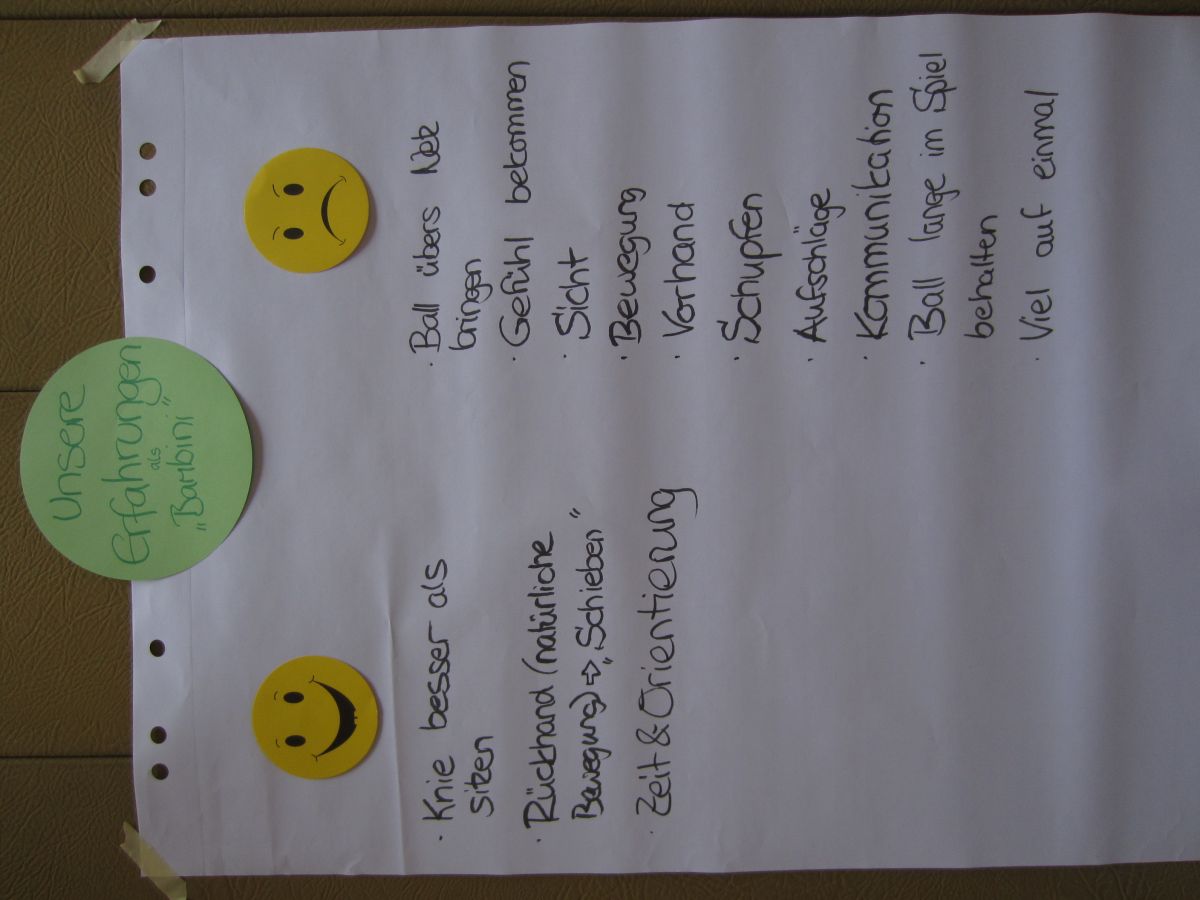 Unsere
Erfahrungen
als
„Bambini“
· Knie besser als
sitzen
· Rückhand (natürliche
Bewegung) => „Schieben“
· Zeit & Orientierung
· Ball übers Netz
bringen
· Gefühl bekommen
· Sicht
· Bewegung
· Vorhand
· Schupfen
· Aufschläge
· Kommunikation
· Ball lange im Spiel
behalten
· Viel auf einmal